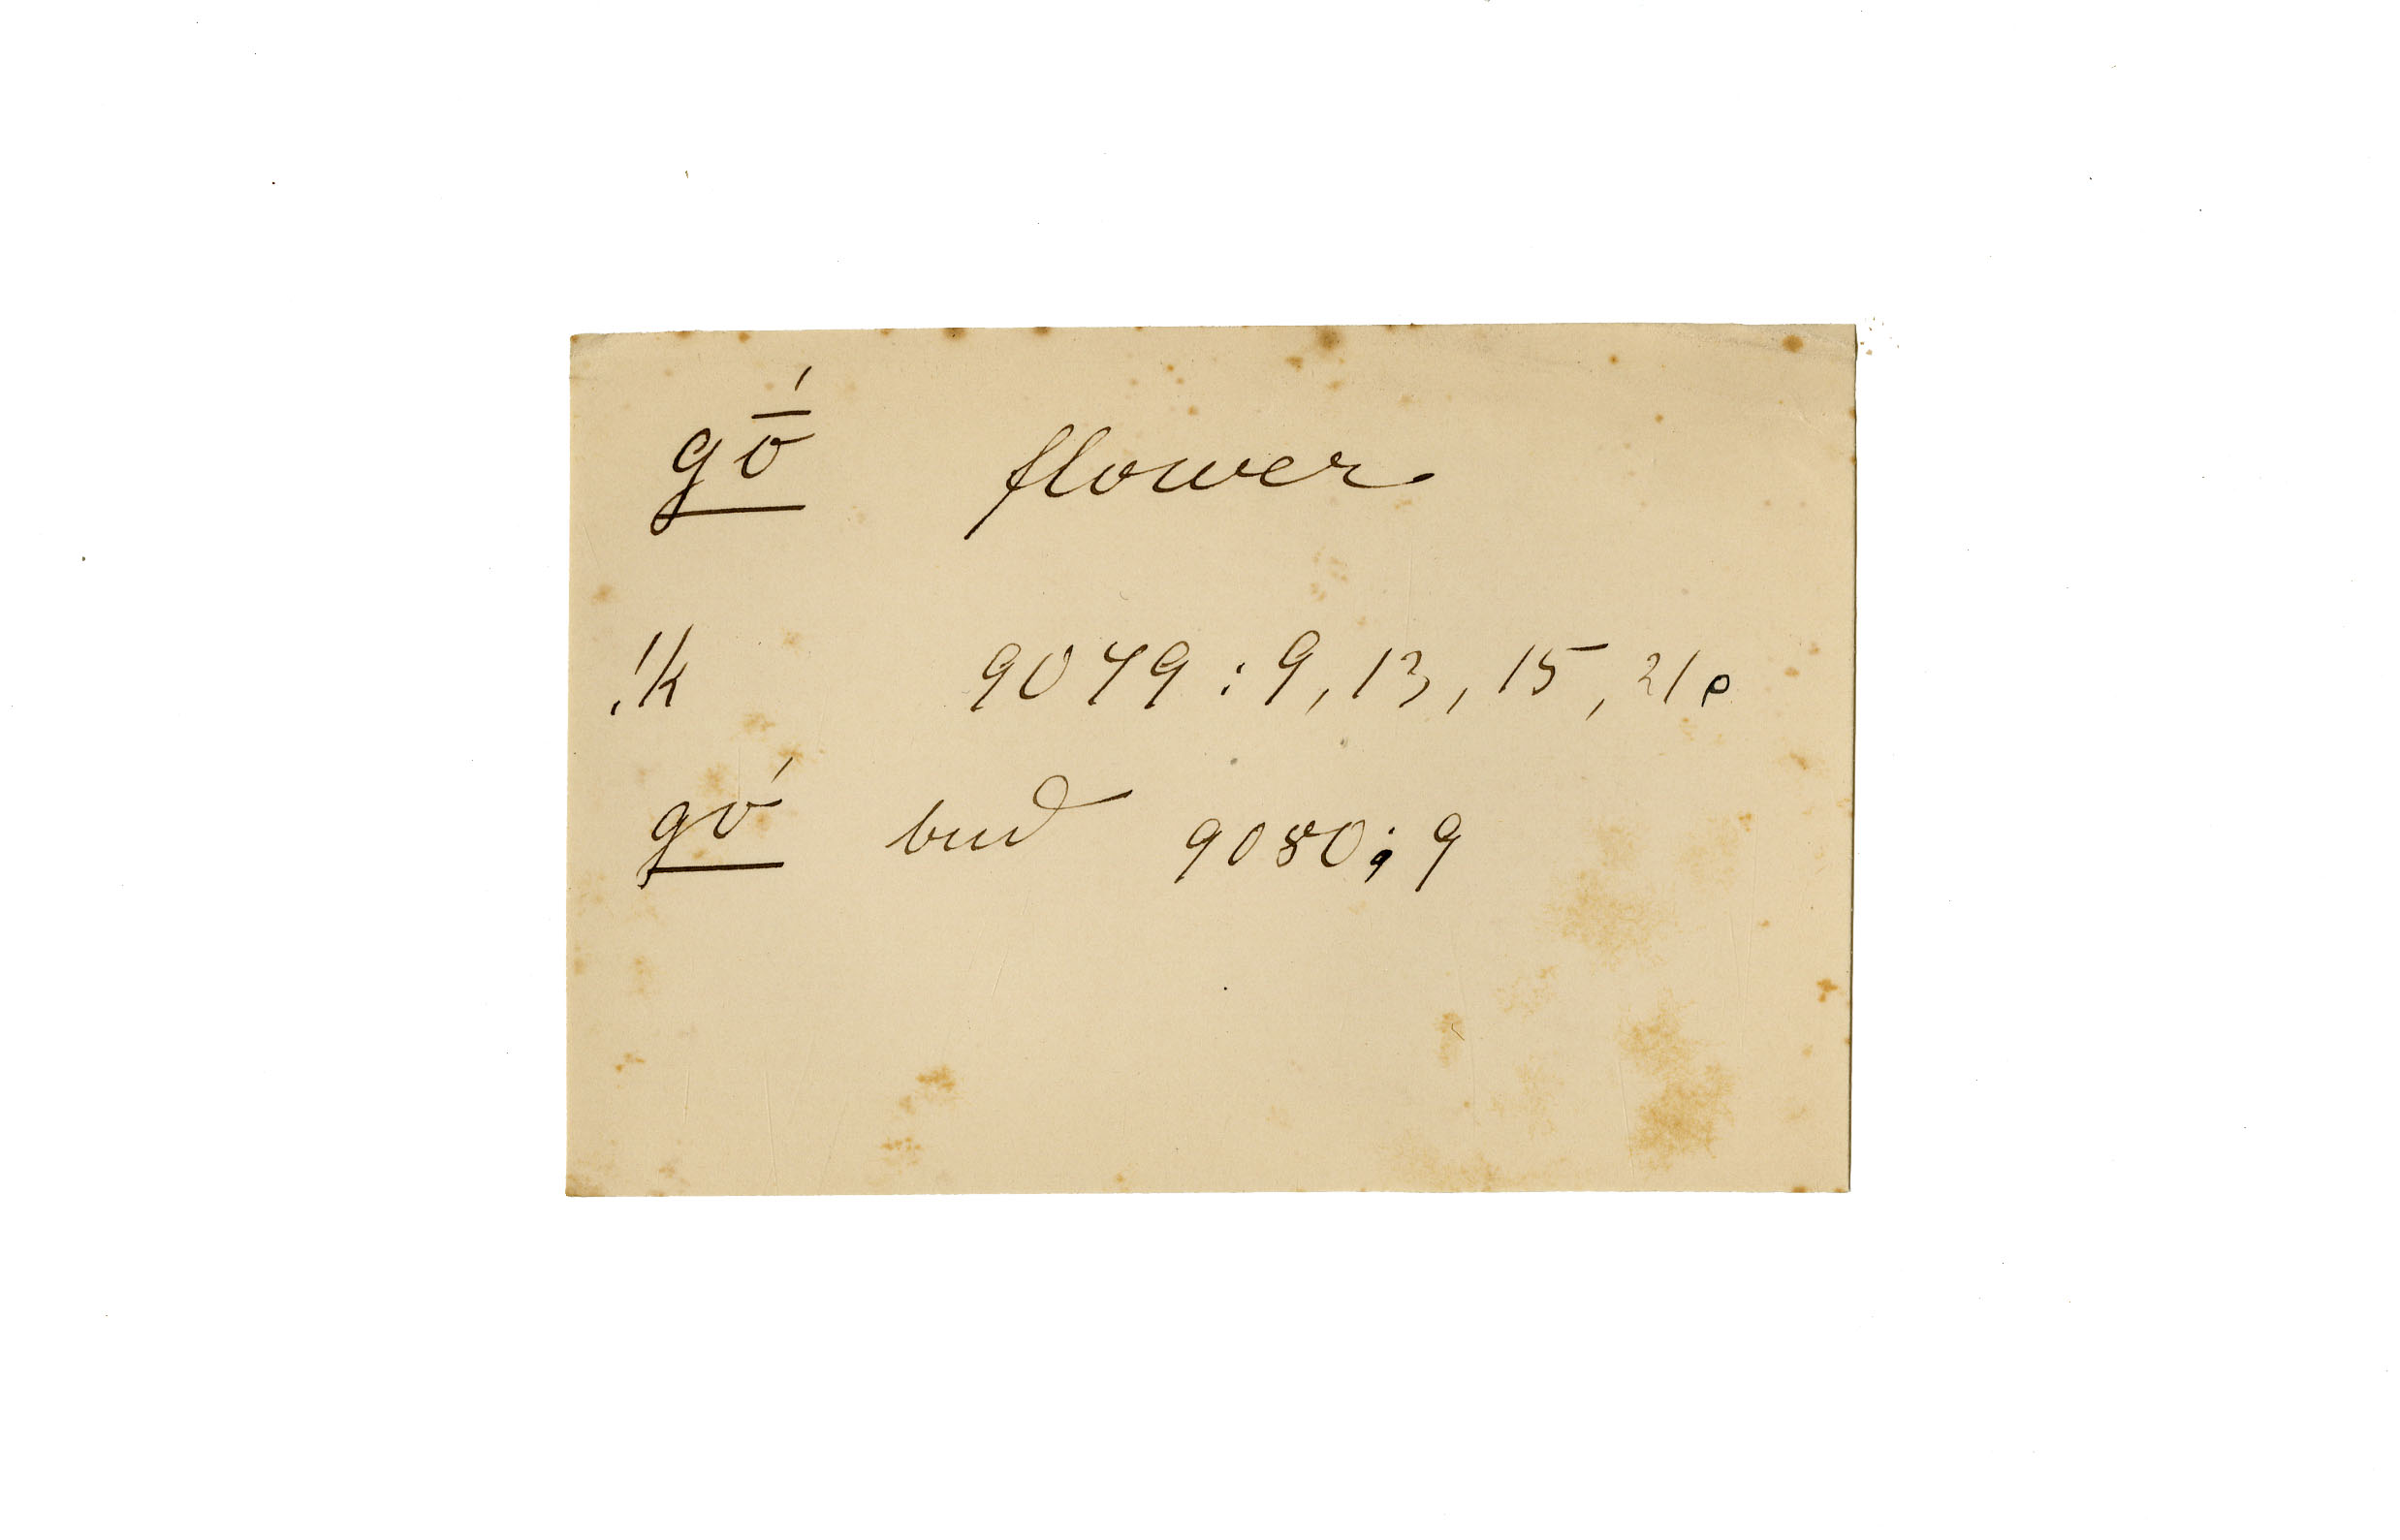 gṓ flower
!k 9079 : 9, 13, 15, 21 p
gó bud 9080 : 9